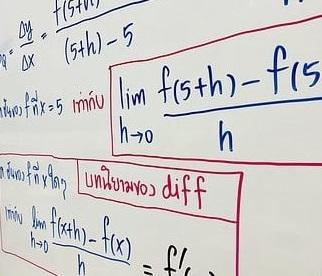 Q = Δy/Δx = f(5+h)/(5+h) - 5
f ที่ x = 5 เท่ากับ lim h→0 f(5+h) - f(5/h
f ที่ x ใดๆ
บทนิยามของ diff
lim h→0 f(x+h) - f(x)/h = f'